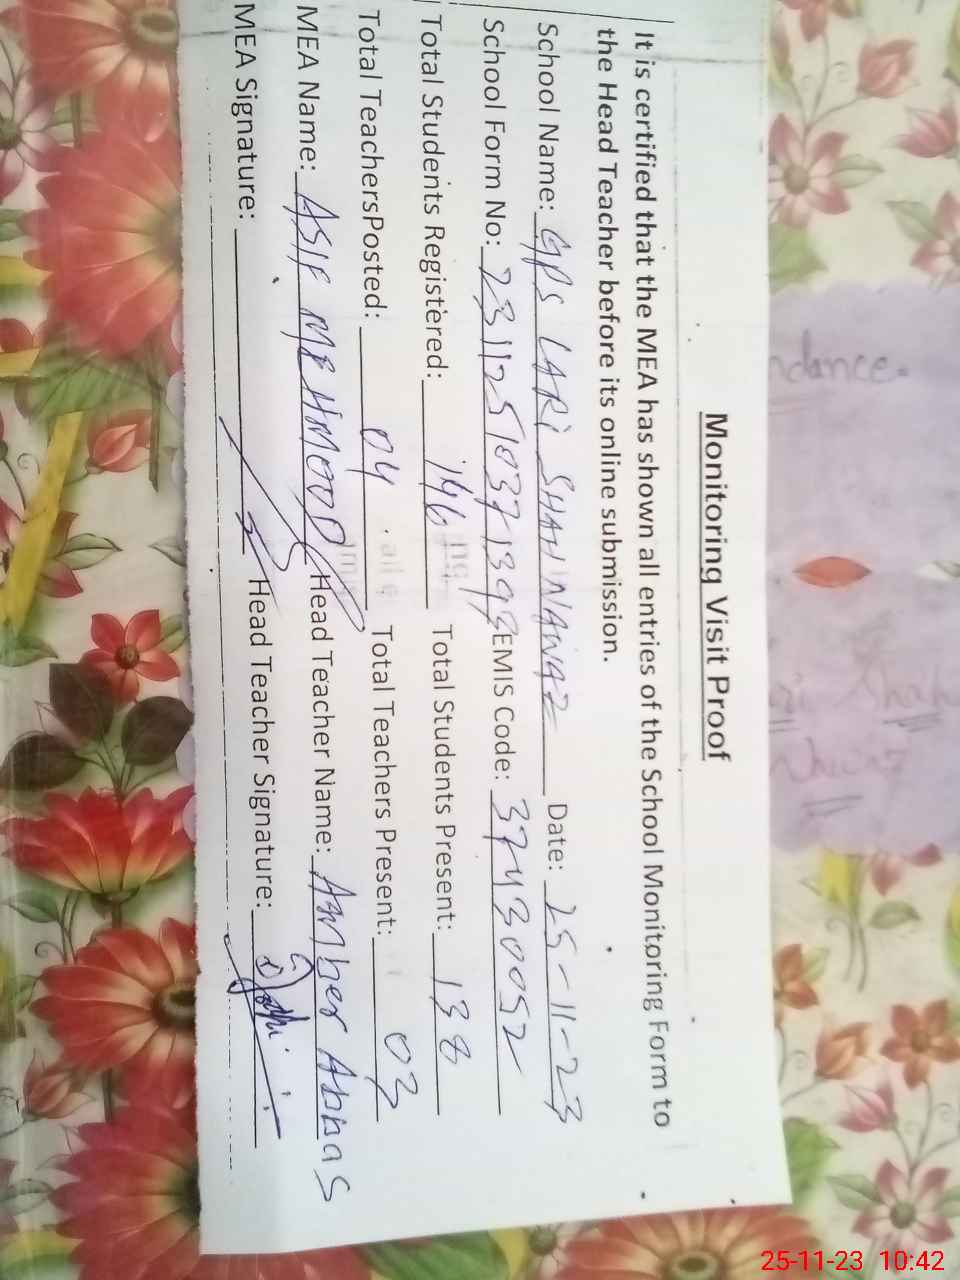 Monitoring Visit Proof
It is certified that the MEA has shown all entries of the School Monitoring Form to
the Head Teacher before its online submission.
School Name: GPS LARI SHAH NAWAZ Date: 25-11-23
School Form No: EMIS Code: 37430052
Total Students Registered: 146 Total Students Present: 138
Total TeachersPosted: 04 Total Teachers Present: 03
MEA Name: ASIF MEHMOOD Head Teacher Name: Amber Abbas
MEA Signature: Head Teacher Signature:
ndance.
25-11-23 10:42